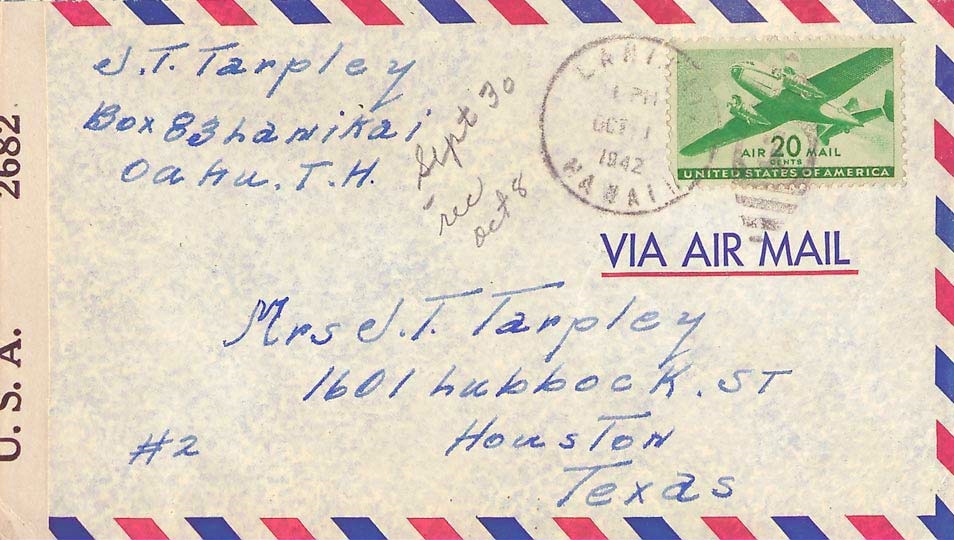 J.T. Tarpley
Box 83 Lanikai
Oahu. T.H.
Sept 30
rec
oct 8
1 PM
OCT 1
1942
HAWAII
AIR 20 MAIL
CENTS
UNITED STATES OF AMERICA
VIA AIR MAIL
Mrs J.T. Tarpley
1601 Lubbock. ST
#2 Houston
Texas
U. S. A. 2682